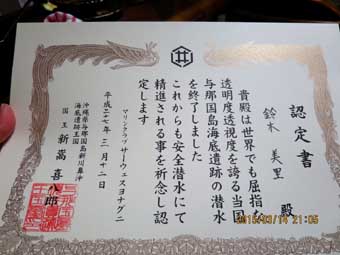 認定書
鈴木 美里 殿
貴殿は世界でも屈指な
透明度透視度を誇る当国
与那国島海底遺跡の潜水
を終了しました
これからも安全潜水にて
精進される事を祈念し認
定します
マリンクラブ サーウェスヨナグニ
平成二十七年 三月十二日
沖縄県与那国島新川鼻沖
海底遺跡王国
国王 新嵩 喜八郎
2015/03/14 21:05